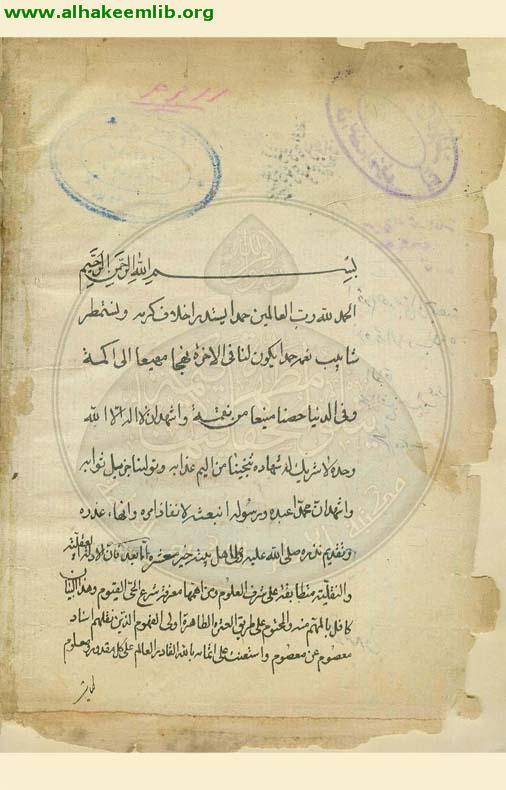 www.alhakeemlib.org
بسم الله الرحمن الرحيم
الحمد لله رب العالمين حمدا يستدر اخلاف كرمه ويستمطر
شابيب نعمه حمدا يكون لنا فى الاخرة نهجا مهيعا الى
وفى الدنيا حصنا منيعا من نقمته واشهد ان لا اله الا الله
وحده لا شريك له شهادة تنجينا من اليم عذابه وتولينا جزيل ثوابه
واشهد ان محمدا عبده ورسوله ابتعثه لانفاذ امره وانهاء عذره
وتقديم نذره صلى الله عليه وعلى اهل بيته خير معشره اما بعد فان الادلة العقلية
والنقلية متطابقة على شرف العلوم ومن اهمها معرفة شرع الحى القيوم وهذا البيان
كافل بالمهم منه والمحتوم على طريق العترة الطاهرة اولى الفهوم الذين نقلهم اسناد
معصوم عن معصوم واستعنت على اتمامه بالله القادر العالم على كل مقدور ومعلوم